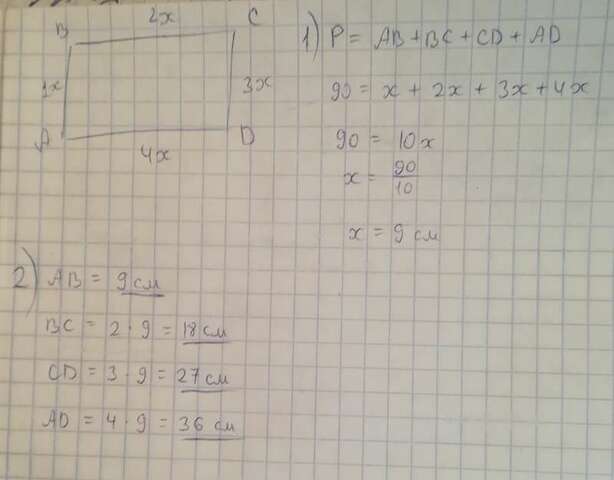 B 2x C
1x 3x
A 4x D
1) P = AB + BC + CD + AD
90 = x + 2x + 3x + 4x
90 = 10x
x = 90/10
x = 9 см
2) AB = 9 см
BC = 2 · 9 = 18 см
CD = 3 · 9 = 27 см
AD = 4 · 9 = 36 см